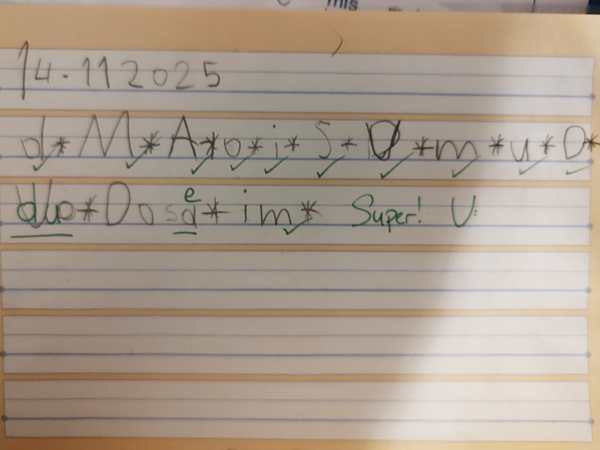 mis
14.11 2025
d*M*A*o*i*S*D*m*u*O*
du*Dosa*im* Super!
e